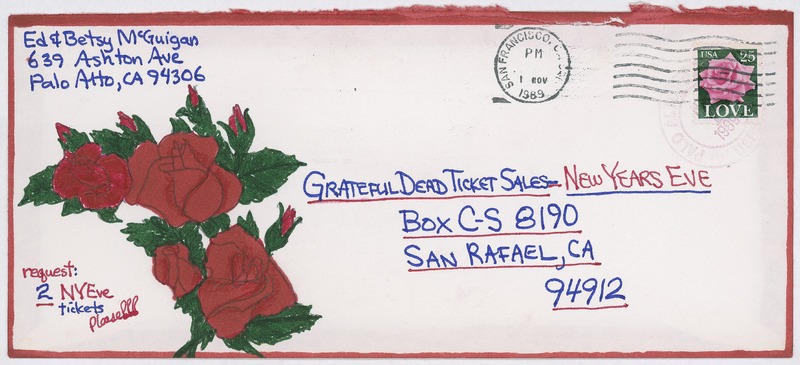 Ed & Betsy McGuigan
639 Ashton Ave
Palo Alto, CA 94306
SAN FRANCISCO, CA
PM
1 NOV
1989
USA 25
LOVE
GRATEFUL DEAD TICKET SALES - NEW YEARS EVE
BOX C-S 8190
SAN RAFAEL, CA
94912
request:
2 NYEve
tickets
please!!!